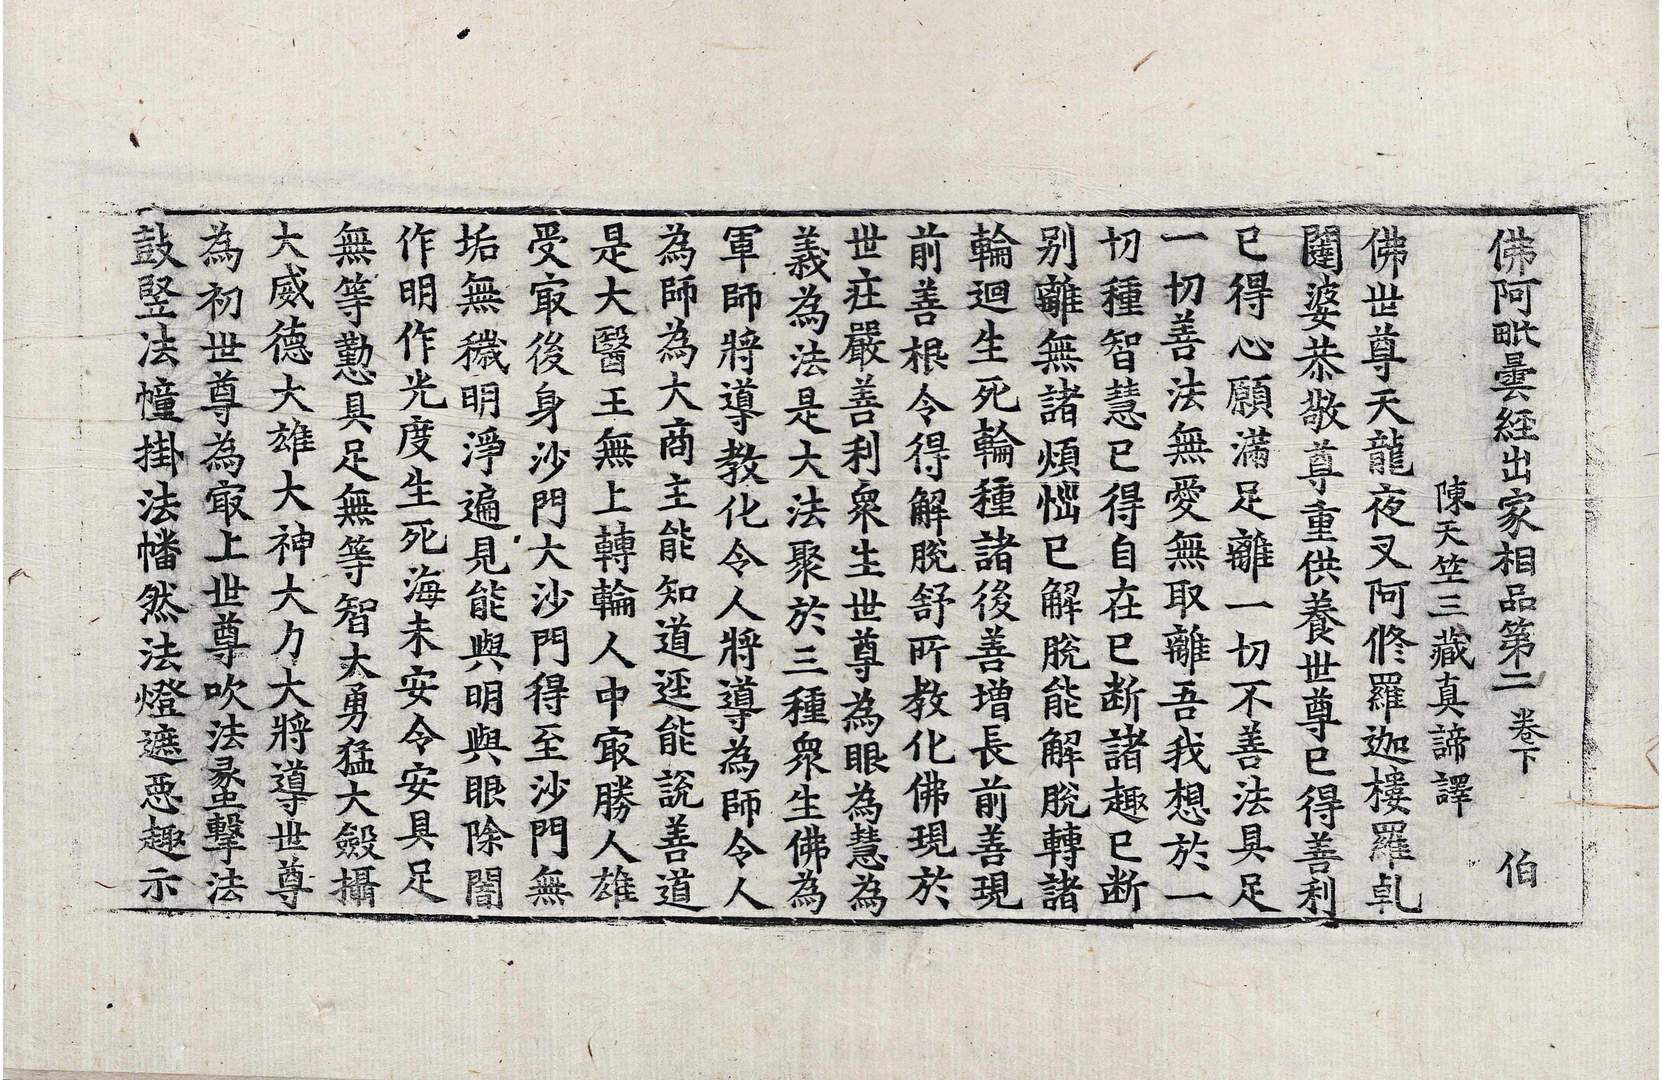 佛阿毗曇經出家相品第二 卷下 伯
陳天竺三藏真諦譯
佛世尊天龍夜叉阿修羅迦樓羅乹
闥婆恭敬尊重供養世尊已得善利
已得心願滿足離一切不善法具足
一切善法無愛無取離吾我想於一
切種智慧已得自在已断諸趣已断
别離無諸煩惱已解脫能解脫轉諸
輪迴生死輪種諸後善增長前善現
前善根令得解脫舒所教化佛現於
世庄嚴善利衆生世尊為眼為慧為
義為法是大法聚於三種衆生佛為
軍師將導教化令人將導為師令人
為師為大商主能知道逕能說善道
是大醫王無上轉輪人中㝡勝人雄
受㝡後身沙門大沙門得至沙門無
垢無穢明淨遍見能與明與眼除闇
作明作光度生死海未安令安具足
無等懃具足無等智太勇猛大毅攝
大威德大雄大神大力大將導世尊
為初世尊為㝡上世尊吹法䗍擊法
鼓竪法幢掛法幡然法燈遮惡趣示